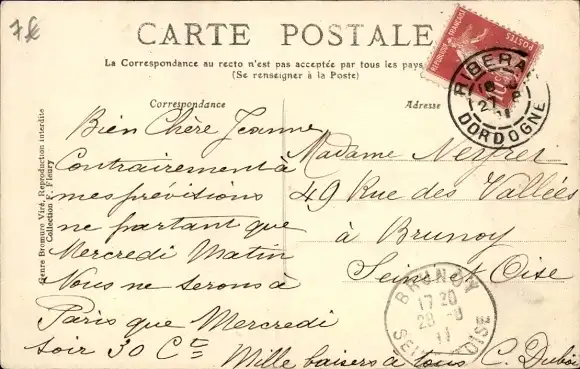 7 €
CARTE POSTALE
La Correspondance au recto n'est pas acceptée par tous les pays
(Se renseigner à la Poste)
Correspondance
Adresse
Bien Chère Jeanne
Contrairement à
mes prévisions
ne partant que
Mercredi Matin
Nous ne serons à
Paris que Mercredi
soir 30 Ct
Mille baisers à tous C. Dubois
Madame Neyret
49 Rue des Vallées
à Brunoy
Seine & Oise
Genre Bromure Viré, Reproduction interdite
Collection F. Fleury
REPUBLIQUE FRANÇAISE
POSTES
10
RIBERA
DORDOGNE
BRUNOY
17 30
28 -8
11
SEINE OISE